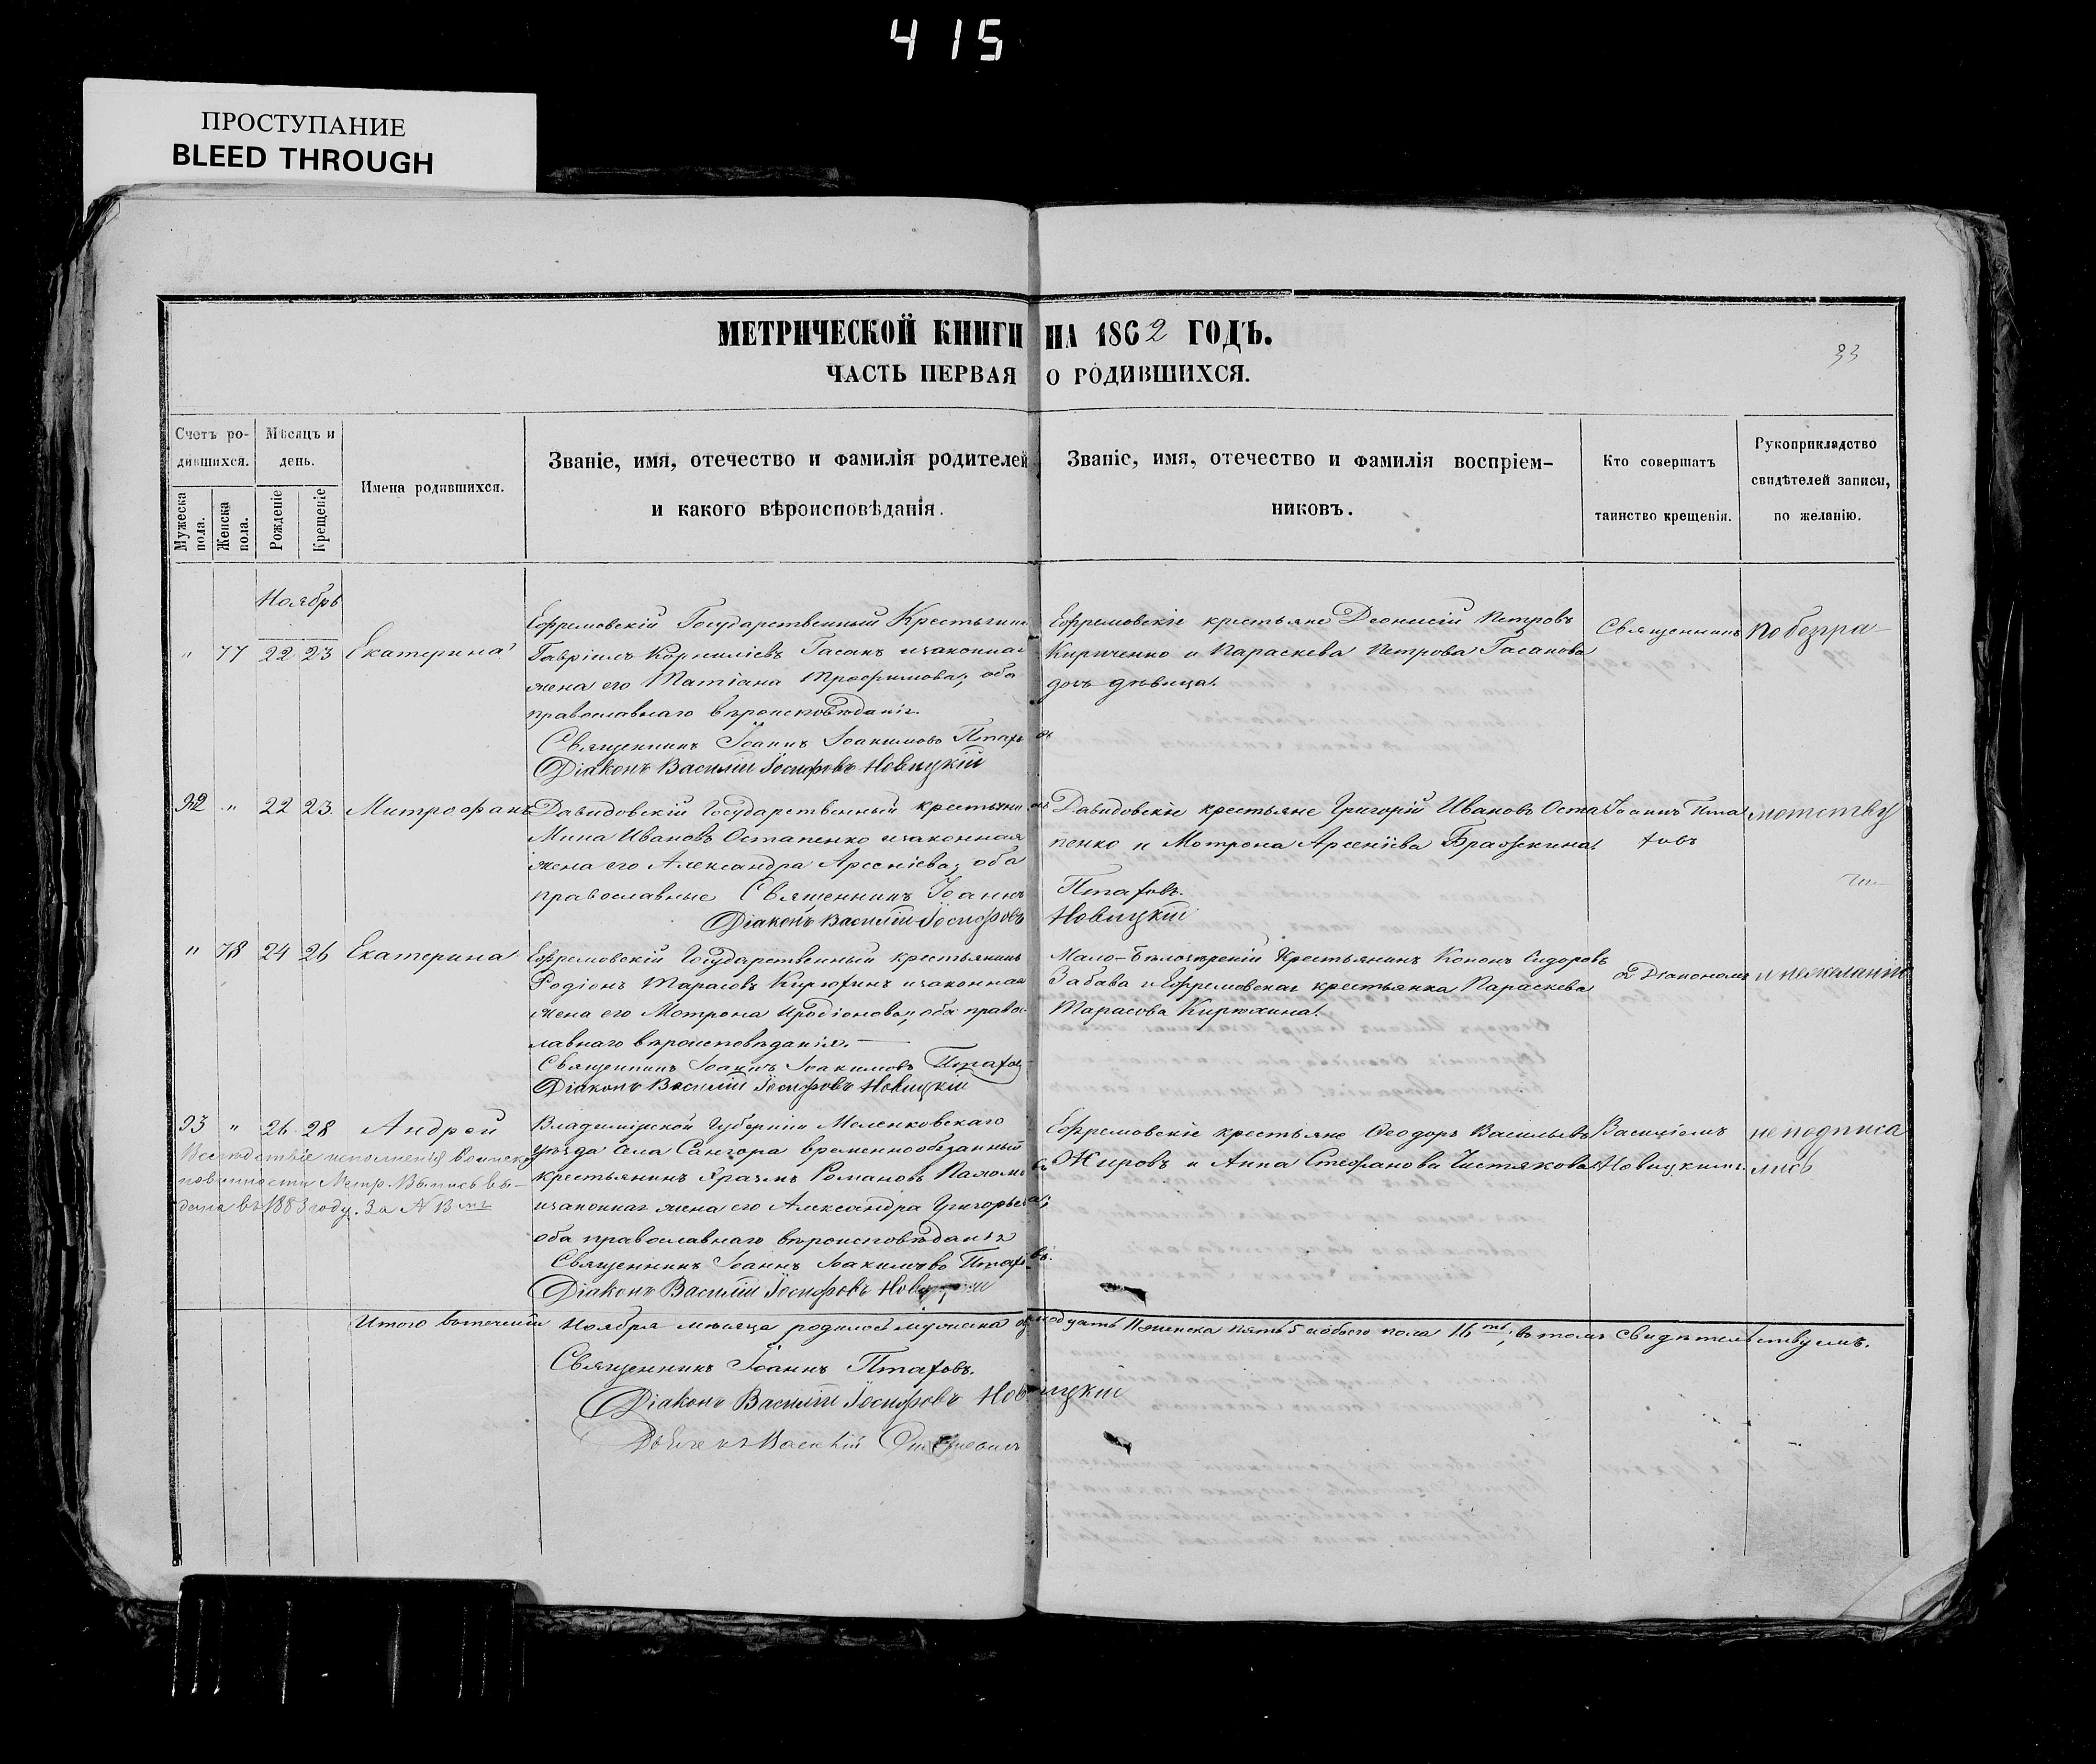 415
ПРОСТУПАНИЕ
BLEED THROUGH
МЕТРИЧЕСКОЙ КНИГИ НА 1862 ГОДЪ.
33
ЧАСТЬ ПЕРВАЯ О РОДИВШИХСЯ.
Счетъ ро-
дившихся.
Мужеска пола.
Женска пола.
Мѣсяцъ и
день.
Рожденіе
Крещеніе
Имена родившихся.
Званіе, имя, отечество и фамилія родителей
и какого вѣроисповѣданія.
Званіе, имя, отечество и фамилія воспріем-
никовъ.
Кто совершатъ
таинство крещенія.
Рукоприкладство
свидѣтелей записи,
по желанію.
Ноябрь
" 77 22 23 Екатерина
Ефремовскій Государственный Крестьянин
Гавріилъ Корниліевъ Гасанъ изаконная
жена его Татіана Трофимова; оба
православнаго вѣроисповѣданія.
Священникъ Іоаннъ Іоакимовъ Птаховъ
Діаконъ Василій Іосифовъ Новицкій
Ефремовскіе крестьяне Деонисій Петровъ
Кириченко и Параскева Петрова Гасанова
дочь дѣвица.
Священникъ
По безгра-
92 " 22 23. Митрофанъ
Давидовскій Государственный крестьянинъ
Мина Ивановъ Остапенко изаконная
жена его Александра Арсеніева; оба
православные Священникъ Іоаннъ Птаховъ.
Діаконъ Василій Іосифовъ Новицкій
Давидовскіе крестьяне Григорій Ивановъ Оста
пенко и Мотрона Арсеніева Бражкина.
Іоаннъ Пта
ховъ
мотству
" 78 24 26 Екатерина
Ефремовскій Государственный крестьянинъ
Родіонъ Тарасовъ Кирюхинъ изаконная
жена его Мотрона Иродіонова; оба правос
лавнаго вѣроисповѣданія.
Священникъ Іоаннъ Іоакимовъ Птаховъ
Діаконъ Василій Іосифовъ Новицкій
Мало-Бѣлозерскій Крестьянинъ Кононъ Сидоровъ
Забава и Ефремовская крестьянка Параскева
Тарасова Кирюхина.
съ Діакономъ
и нежеланію
93 " 26 28 Андрей
Вслѣдствіе исполненія воинской
повинности Метр. Выпись вы-
дана въ 1883 году. За N 13 мъ
Владимірской Губерніи Меленковскаго
уѣзда Села Санчора временнообязанный
крестьянинъ Романовъ
изаконная жена его Александра Григорьева;
оба православнаго вѣроисповѣданія
Священникъ Іоаннъ Іоакимовъ Птаховъ.
Діаконъ Василій Іосифовъ Новицкій
Ефремовскіе крестьяне Феодоръ Васильевъ
Жировъ и Анна Стефанова Чистякова.
Василіемъ
Новицкимъ.
не подписа
лись
Итого втеченіи Ноября мѣсяца родилось мужеска одинадцать 11 женска пять 5 и обоего пола 16 ть; въ томъ свидѣтельствуемъ.
Священникъ Іоаннъ Птаховъ.
Діаконъ Василій Іосифовъ Новицкій
Василій